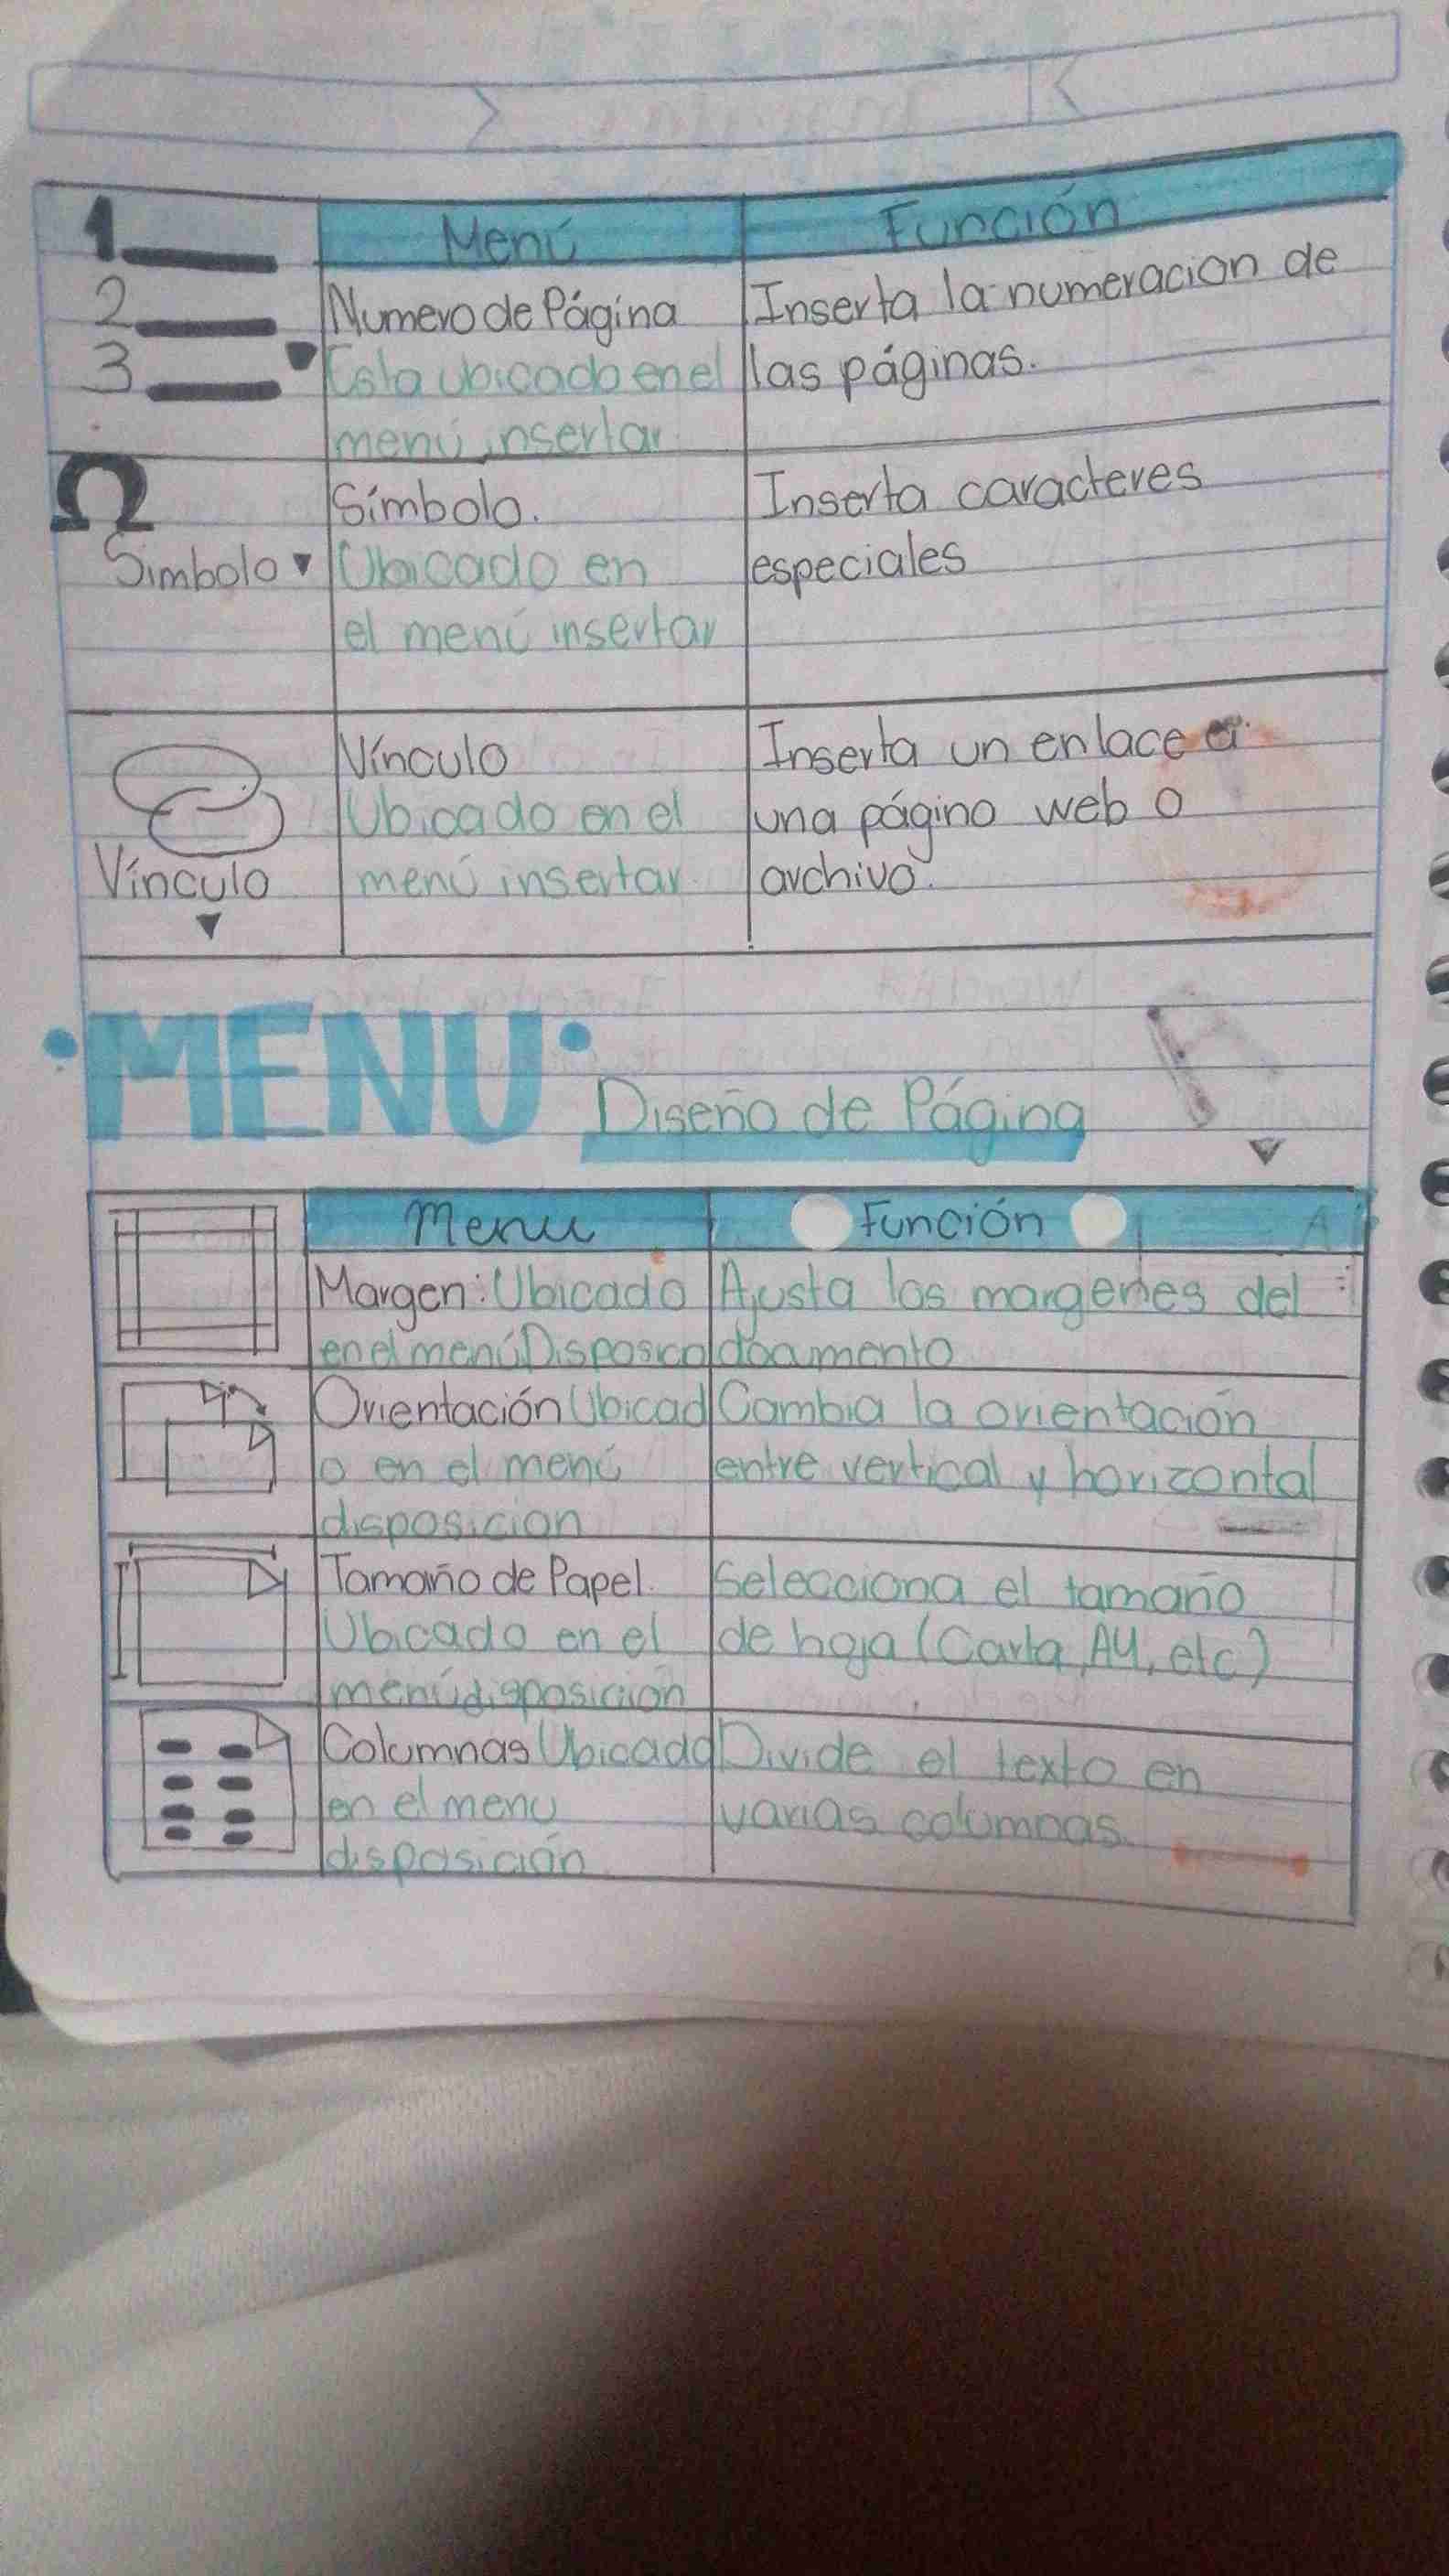 1
Menú
Función
2
3
Numero de Página
Esta ubicado en el
menú insertar
Inserta la numeracion de
las páginas.
Ω
Simbolo
Símbolo.
Ubicado en
el menú insertar
Inserta caracteres
especiales
Vínculo
Vínculo
Ubicado en el
menú insertar
Inserta un enlace a
una págino web o
archivo.
MENU
Diseño de Página
Menu
Función
Margen: Ubicado
en el menú Disposico
Ajusta los margenes del
documento
Orientación Ubicad
o en el menú
disposicion
Cambia la orientación
entre vertical y horizontal
Tamaño de Papel.
Ubicado en el
menú disposición
Selecciona el tamaño
de hoja (Carta, A4, etc)
Columnas Ubicado
en el menu
disposición
Divide el texto en
varias columnas.